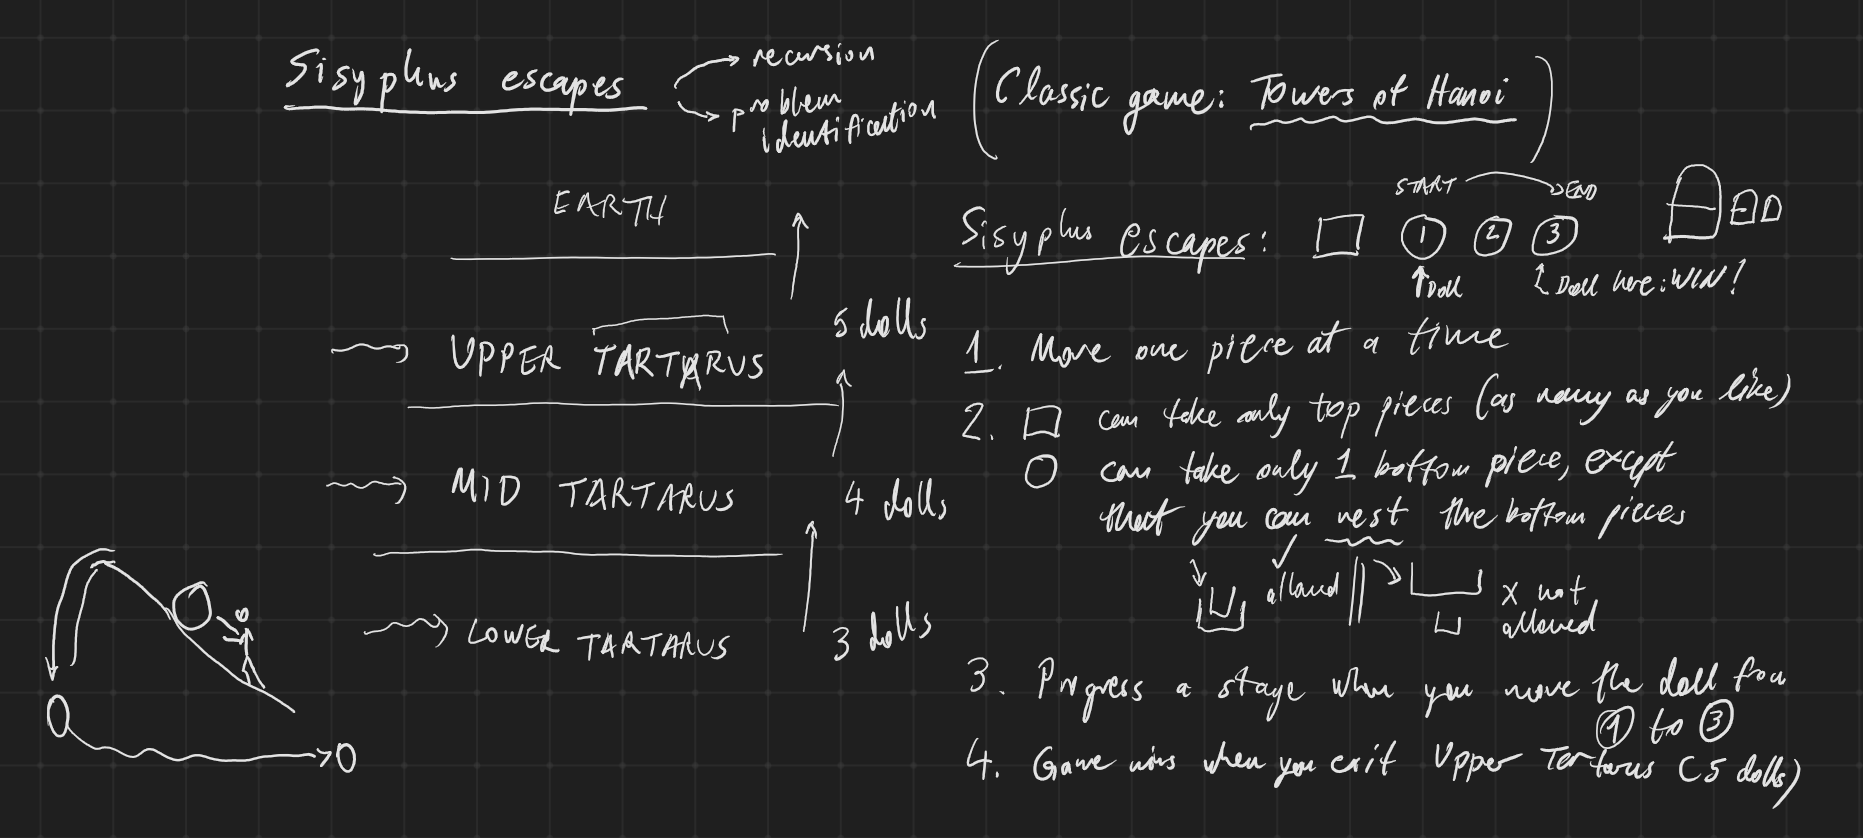 Sisyphus escapes
recursion
problem
identification
(Classic game: Towers of Hanoi)
EARTH
5 dolls
UPPER TARTARUS
MID TARTARUS
4 dolls
LOWER TARTARUS
3 dolls
START END
Sisyphus escapes: 1 2 3
Doll Doll here: WIN!
1. Move one piece at a time
2. □ can take only top pieces (as many as you like)
○ can take only 1 bottom piece, except
that you can nest the bottom pieces
✓ allowed x not
allowed
3. Progress a stage when you move the doll from
① to ③
4. Game wins when you exit Upper Tartarus (5 dolls)